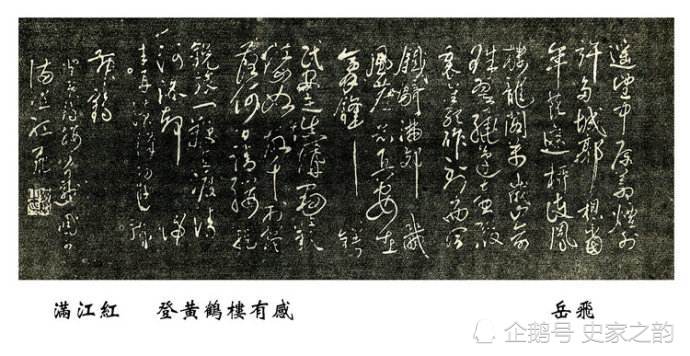 遥望中原荒煙外
許多城郭想當
年花遮柳護鳳
樓龍閣萬歲山前
珠翠繞蓬壺殿
裏笙歌作到而今
鐵騎滿郊畿
風塵惡兵安在
膏鋒鍔
民安在填溝壑嘆
江山如故千村寥
落何日請纓提
銳旅一鞭直渡清
河洛却歸
来再續漢陽遊騎
黃鶴
登黃鶴樓有感
滿江紅 飛
滿江紅 登黃鶴樓有感 岳飛
企鹅号 史家之韵